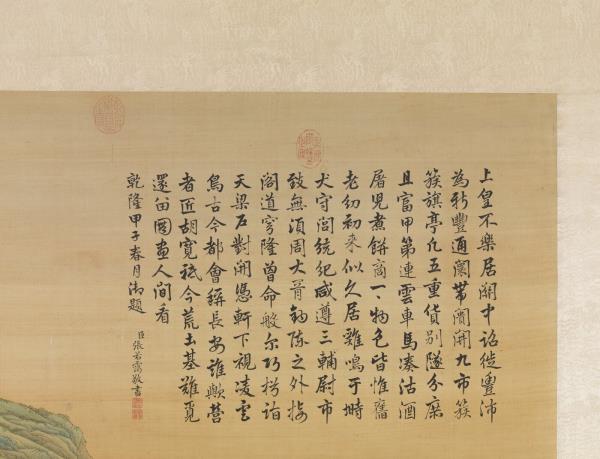 上皇不樂居關中詔徙豐沛
為新豐通闤帶闠開九市簇
簇旗亭凡五重貨別隧分糜
且富甲第連雲車馬湊沽酒
屠兒煮餅商一一物色皆惟舊
老幼初來似久居雞鳴于塒
犬守閭統紀咸遵三輔尉市
政無須周大胥鉤陳之外接
閣道穹隆曾命般爾巧
天梁對開憑軒下視凌雲
鳥古今都會稱長安誰歟營
者匠胡寬祗今荒土基難覓
還留圖畫人間看
乾隆甲子春月御題
臣張若靄敬書